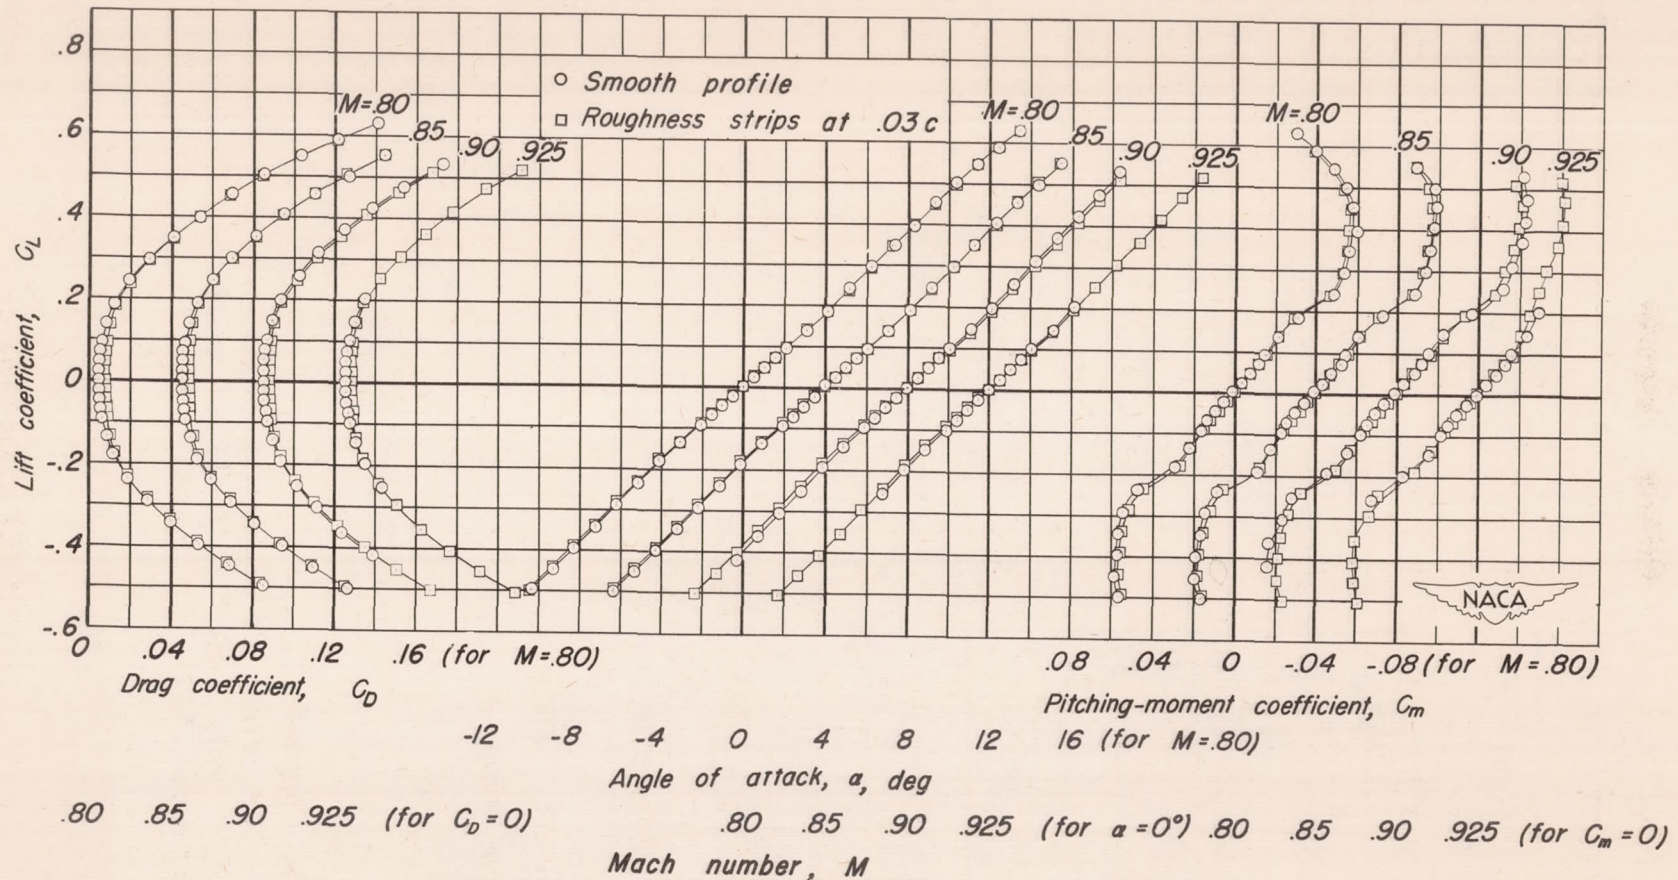 .8
.6
.4
.2
0
-.2
-.4
-.6
Lift coefficient, C_L
○ Smooth profile
□ Roughness strips at .03c
M=.80
.85
.90
.925
M=.80
.85
.90
.925
M=.80
.85
.90
.925
NACA
0 .04 .08 .12 .16 (for M=.80)
Drag coefficient, C_D
.08 .04 0 -.04 -.08 (for M=.80)
Pitching-moment coefficient, C_m
-12 -8 -4 0 4 8 12 16 (for M=.80)
Angle of attack, α, deg
.80 .85 .90 .925 (for C_D=0)
.80 .85 .90 .925 (for α=0°)
.80 .85 .90 .925 (for C_m=0)
Mach number, M